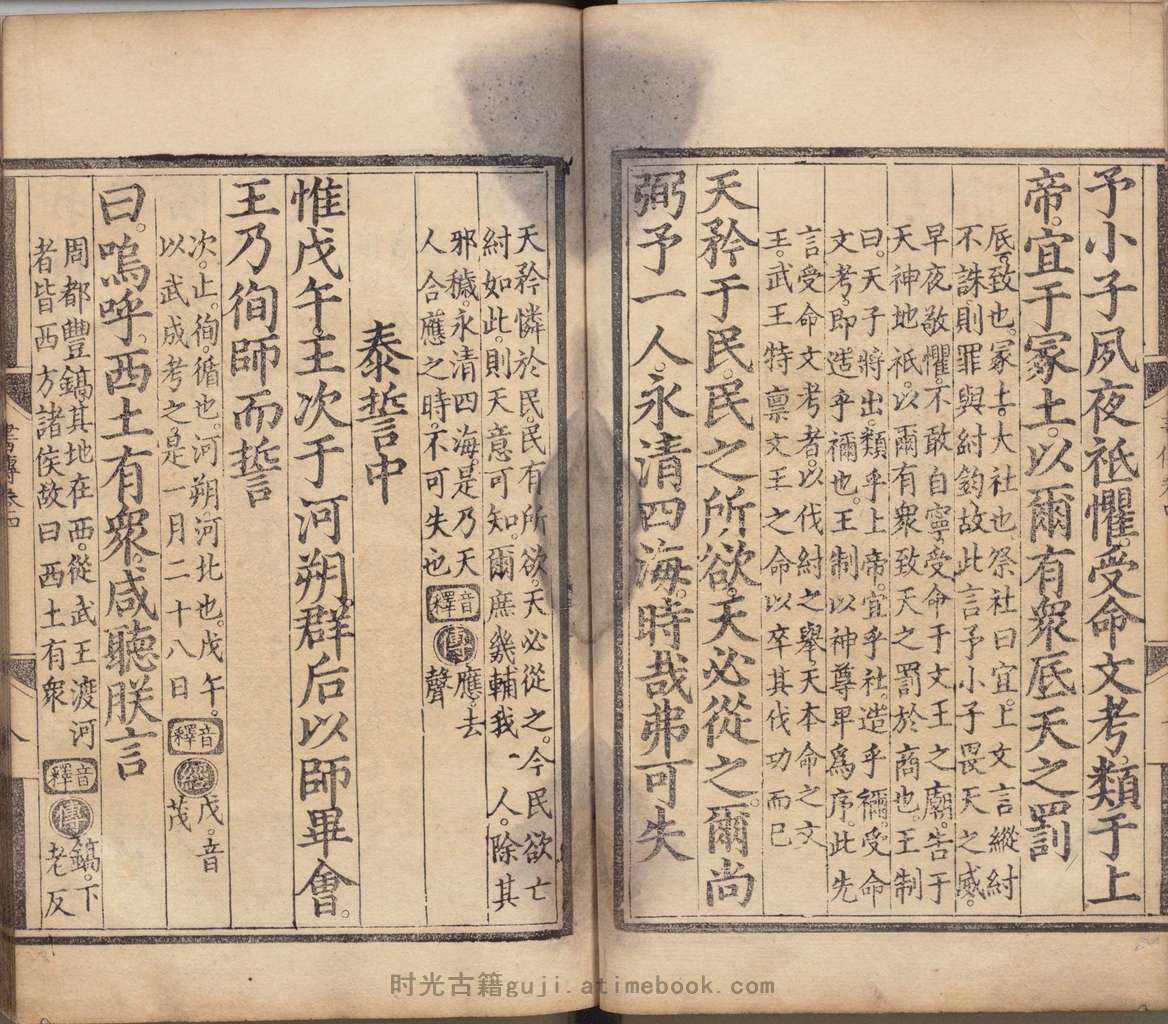 予小子夙夜祗懼。受命文考。類于上
帝。宜于冢土。以爾有衆。厎天之罰
厎。致也。冢土。大社也。祭社曰宜。上文言縱紂
不誅。則罪與紂鈞。故此言予小子畏天之威。
早夜敬懼。不敢自寧。受命于文王之廟。告于
天神地祇。以爾有衆致天之罰於商也。王制
曰。天子將出。類乎上帝。宜乎社。造乎禰。受命
文考。即造乎禰也。王制以神尊卑爲序。此先
言受命文考者。以伐紂之舉。天本命之文
王。武王特禀文王之命以卒其伐功而已
天矜于民。民之所欲。天必從之。爾尚
弼予一人。永清四海。時哉弗可失
天矜憐於民。民有所欲。天必從之。今民欲亡
紂如此。則天意可知。爾庶幾輔我一人。除其
邪穢。永清四海。是乃天
人合應之時。不可失也
音釋
傳
應。去
聲
泰誓中
惟戊午。王次于河朔。群后以師畢會。
王乃徇師而誓
次。止。徇。循也。河朔河北也。戊午。
以武成考之。是一月二十八日
音釋
經
戊。音
茂
曰。嗚呼。西土有衆。咸聽朕言
周都豐鎬。其地在西。從武王渡河
者皆西方諸侯。故曰西土有衆
音釋
傳
鎬。下
老反
書傳卷四
八
时光古籍guji.atimebook.com